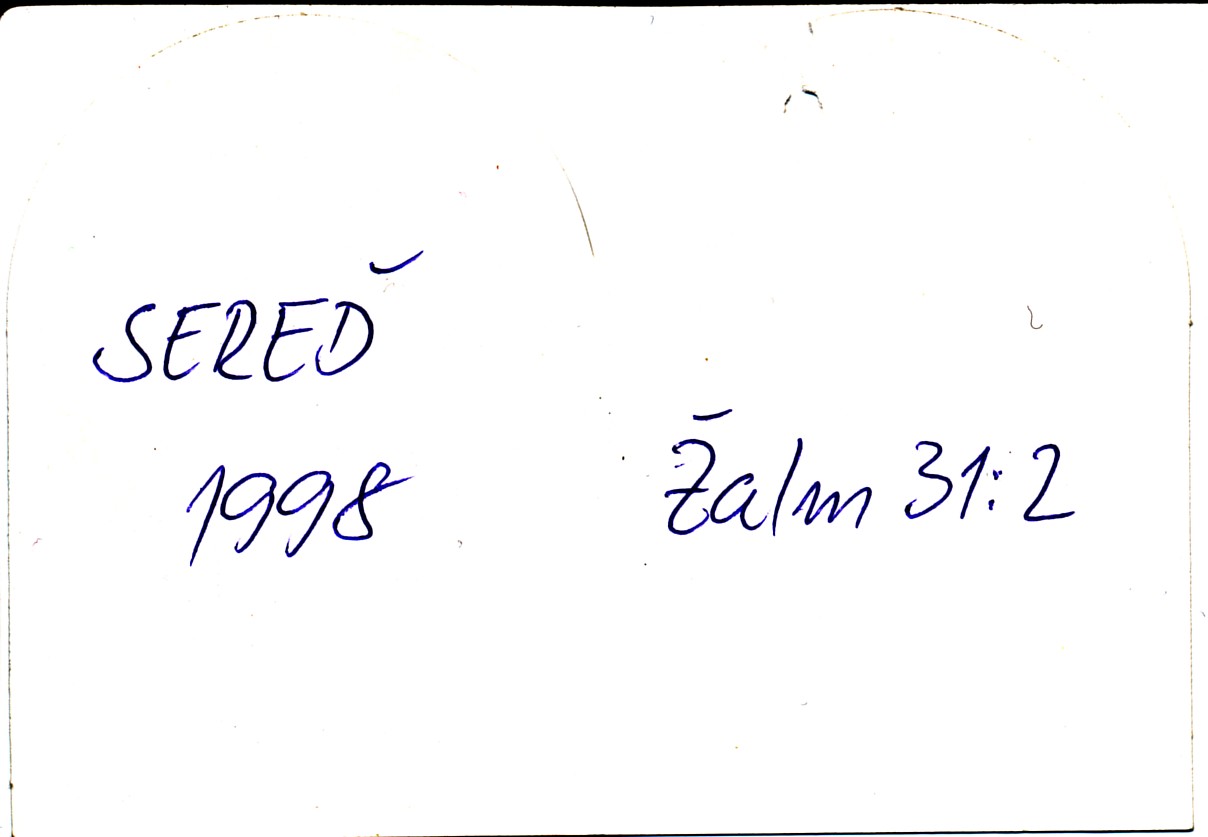 SEREĎ
1998
Žalm 31:2